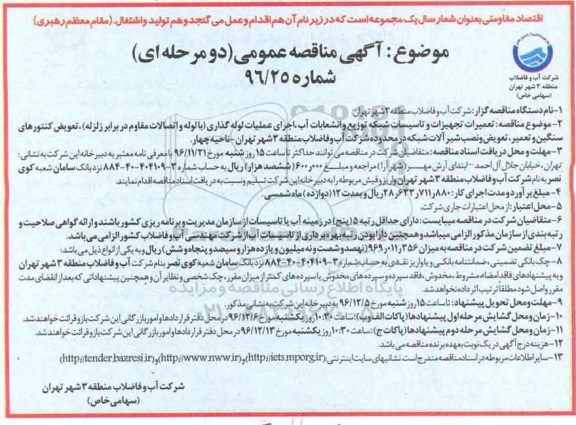 اقتصاد مقاومتی بعنوان شعار سال یک مجموعه است که در زیر نام آن هم اقدام و عمل می گنجد و هم تولید و اشتغال. (مقام معظم رهبری)
موضوع: آگهی مناقصه عمومی (دو مرحله ای)
شماره ۹۶/۲۵
شرکت آب و فاضلاب
منطقه ۳ شهر تهران
(سهامی خاص)
۱- نام دستگاه مناقصه گزار: شرکت آب و فاضلاب منطقه ۳ شهر تهران
۲- موضوع مناقصه: تعمیرات تجهیزات و تاسیسات شبکه توزیع و انشعابات آب، اجرای عملیات لوله گذاری (با لوله و اتصالات مقاوم در برابر زلزله)، تعویض کنتورهای
سنگین و تعمیر، تعویض و نصب شیرآلات شبکه در محدوده شرکت آب و فاضلاب منطقه ۳ شهر تهران - ناحیه چهار.
۳- مهلت و محل دریافت اسناد مناقصه: متقاضیان شرکت در مناقصه می توانند حداکثر تا ساعت ۱۵ روز شنبه مورخ ۹۶/۱۱/۲۱ با معرفی نامه معتبر به دبیرخانه این شرکت به نشانی:
تهران، خیابان جلال آل احمد - ابتدای آرش مهر مراجعه و مبلغ ۶۰۰,۰۰۰ (ششصد هزار) ریال به حساب شماره ۳-۴۰۴۱۰۹-۴۰-۸۸۴ نزد بانک سامان شعبه کوی
نصر به نام شرکت آب و فاضلاب منطقه ۳ شهر تهران واریز و فیش مربوطه را به دبیرخانه این شرکت تسلیم و نسبت به دریافت اسناد مناقصه اقدام نمایند.
۴- مبلغ برآورد و مدت اجرای کار: ۲۸,۶۳۳,۷۱۱,۸۸۰ ریال و بمدت ۱۲ (دوازده) ماه شمسی.
۵- محل اعتبار: از محل اعتبارات جاری شرکت.
۶- متقاضیان شرکت در مناقصه میبایست: دارای حداقل رتبه ۵ (پنج) در زمینه آب یا تاسیسات از سازمان مدیریت و برنامه ریزی کشور باشند و ارائه گواهی صلاحیت و
رتبه بندی از سازمان مذکور الزامی میباشد و همچنین دارا بودن رتبه بهره برداری از تاسیسات آب از شرکت مهندسی آب و فاضلاب کشور الزامی می باشد.
۷- مبلغ تضمین شرکت در مناقصه به میزان ۹۶۹,۰۱۱,۳۵۶ (نهصد و شصت و نه میلیون و یازده هزار و سیصد و پنجاه و شش) ریال و به یکی از انواع ذیل می باشد:
۸- چک بانکی تضمینی، ضمانتنامه بانکی و یا واریز نقدی به حساب شماره ۳-۴۰۴۱۰۹-۴۰-۸۸۴ نزد بانک سامان شعبه کوی نصر بنام شرکت آب و فاضلاب منطقه ۳ شهر تهران
و به پیشنهادهای فاقد امضاء، مشروط، مخدوش، فاقد سپرده و سپرده های مخدوش یا سپرده های کمتر از میزان مقرر، چک شخصی و نظایر آن و همچنین پیشنهاداتی که بعد از انقضای مدت
مقرر واصل شود مطلقاً ترتیب اثر داده نخواهد شد.
۹- مهلت و محل تحویل پیشنهاد: تا ساعت ۱۵ روز شنبه مورخ ۹۶/۱۲/۵ به دبیرخانه این شرکت به نشانی مذکور.
۱۰- زمان و محل گشایش مرحله اول پیشنهادها (پاکات الف و ب): ساعت ۱۰:۳۰ روز یکشنبه مورخ ۹۶/۱۲/۶ در محل دفتر قراردادها و امور بازرگانی این شرکت باز و قرائت خواهند شد.
۱۱- زمان و محل گشایش مرحله دوم پیشنهادها (پاکات ج): ساعت ۱۰:۳۰ روز یکشنبه مورخ ۹۶/۱۲/۱۳ در محل دفتر قراردادها و امور بازرگانی این شرکت باز و قرائت خواهند شد.
۱۲- هزینه درج آگهی در یک نوبت بعهده برنده مناقصه می باشد.
۱۳- سایر اطلاعات مربوطه در اسناد مناقصه مندرج است نشانیهای سایت اینترنتی: (http://iets.mporg.ir) و (http://www.nww.ir) و (http://tender.bazresi.ir)
شرکت آب و فاضلاب منطقه ۳ شهر تهران
(سهامی خاص)